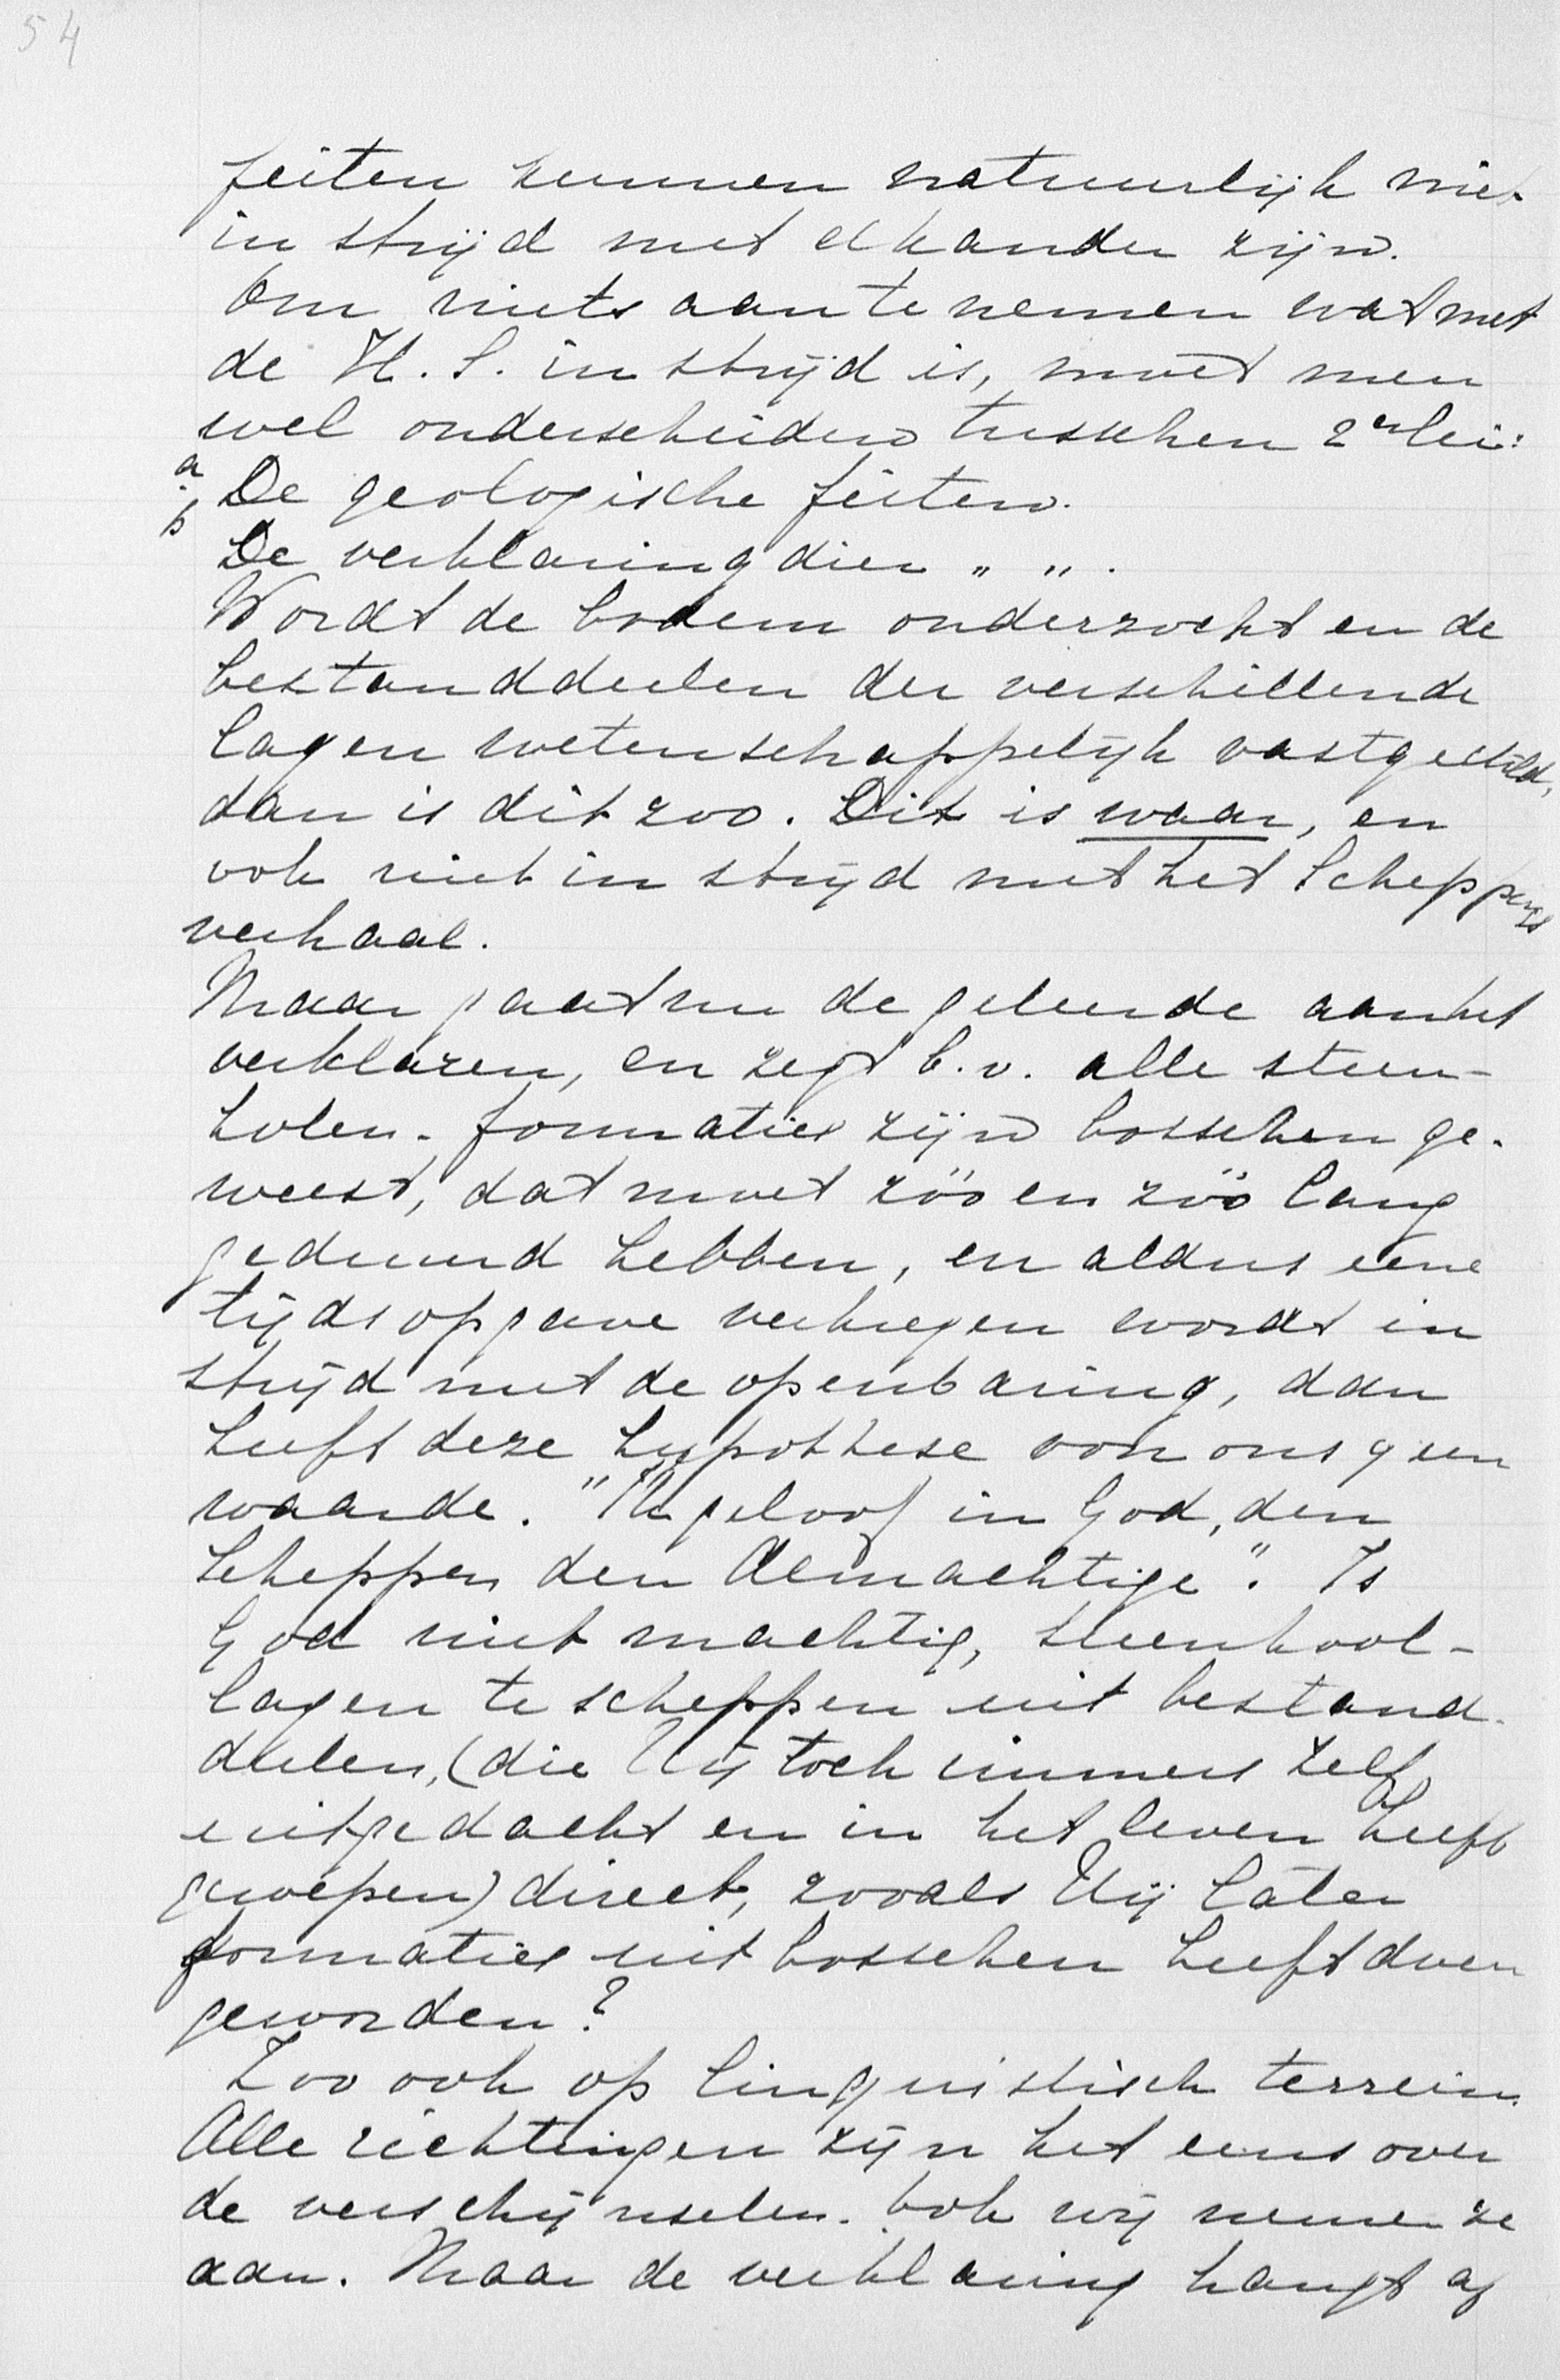 54
feiten kunnen natuurlijk niet
in strijd met elkander zijn.
Om niets aan te nemen wat met
de H. S. in strijd is, moet men
wel onderscheiden tusschen 2erlei:
a. De geologische feiten.
b. De verklaring dier " ".
Wordt de bodem onderzocht en de
bestanddeelen der verschillende
lagen wetenschappelijk vastgesteld,
dan is dit zoo. Dit is waar, en
ook niet in strijd met het Scheppings
verhaal.
Maar gaat nu de geleerde aan het
verklaren, en zegt b.v. alle steen-
kolen-formaties zijn bosschen ge-
weest, dat moet zóó en zóó lang
geduurd hebben, en aldus eene
tijdsopgave verkregen wordt in
strijd met de openbaring, dan
heeft deze hypothese voor ons geen
waarde. "Ik geloof in God, den
Schepper, den Almachtige". Is
God niet machtig, steenkool-
lagen te scheppen uit bestand-
deelen, (die Hij toch immers zelf
uitgedacht en in het leven heeft
geroepen) direct, zooals Hij later
formaties uit bosschen heeft doen
geworden?
Zoo ook op linguistisch terrein.
Alle richtingen zijn het eens over
de verschijnselen. Ook wij nemen ze
aan. Maar de verklaring hangt af